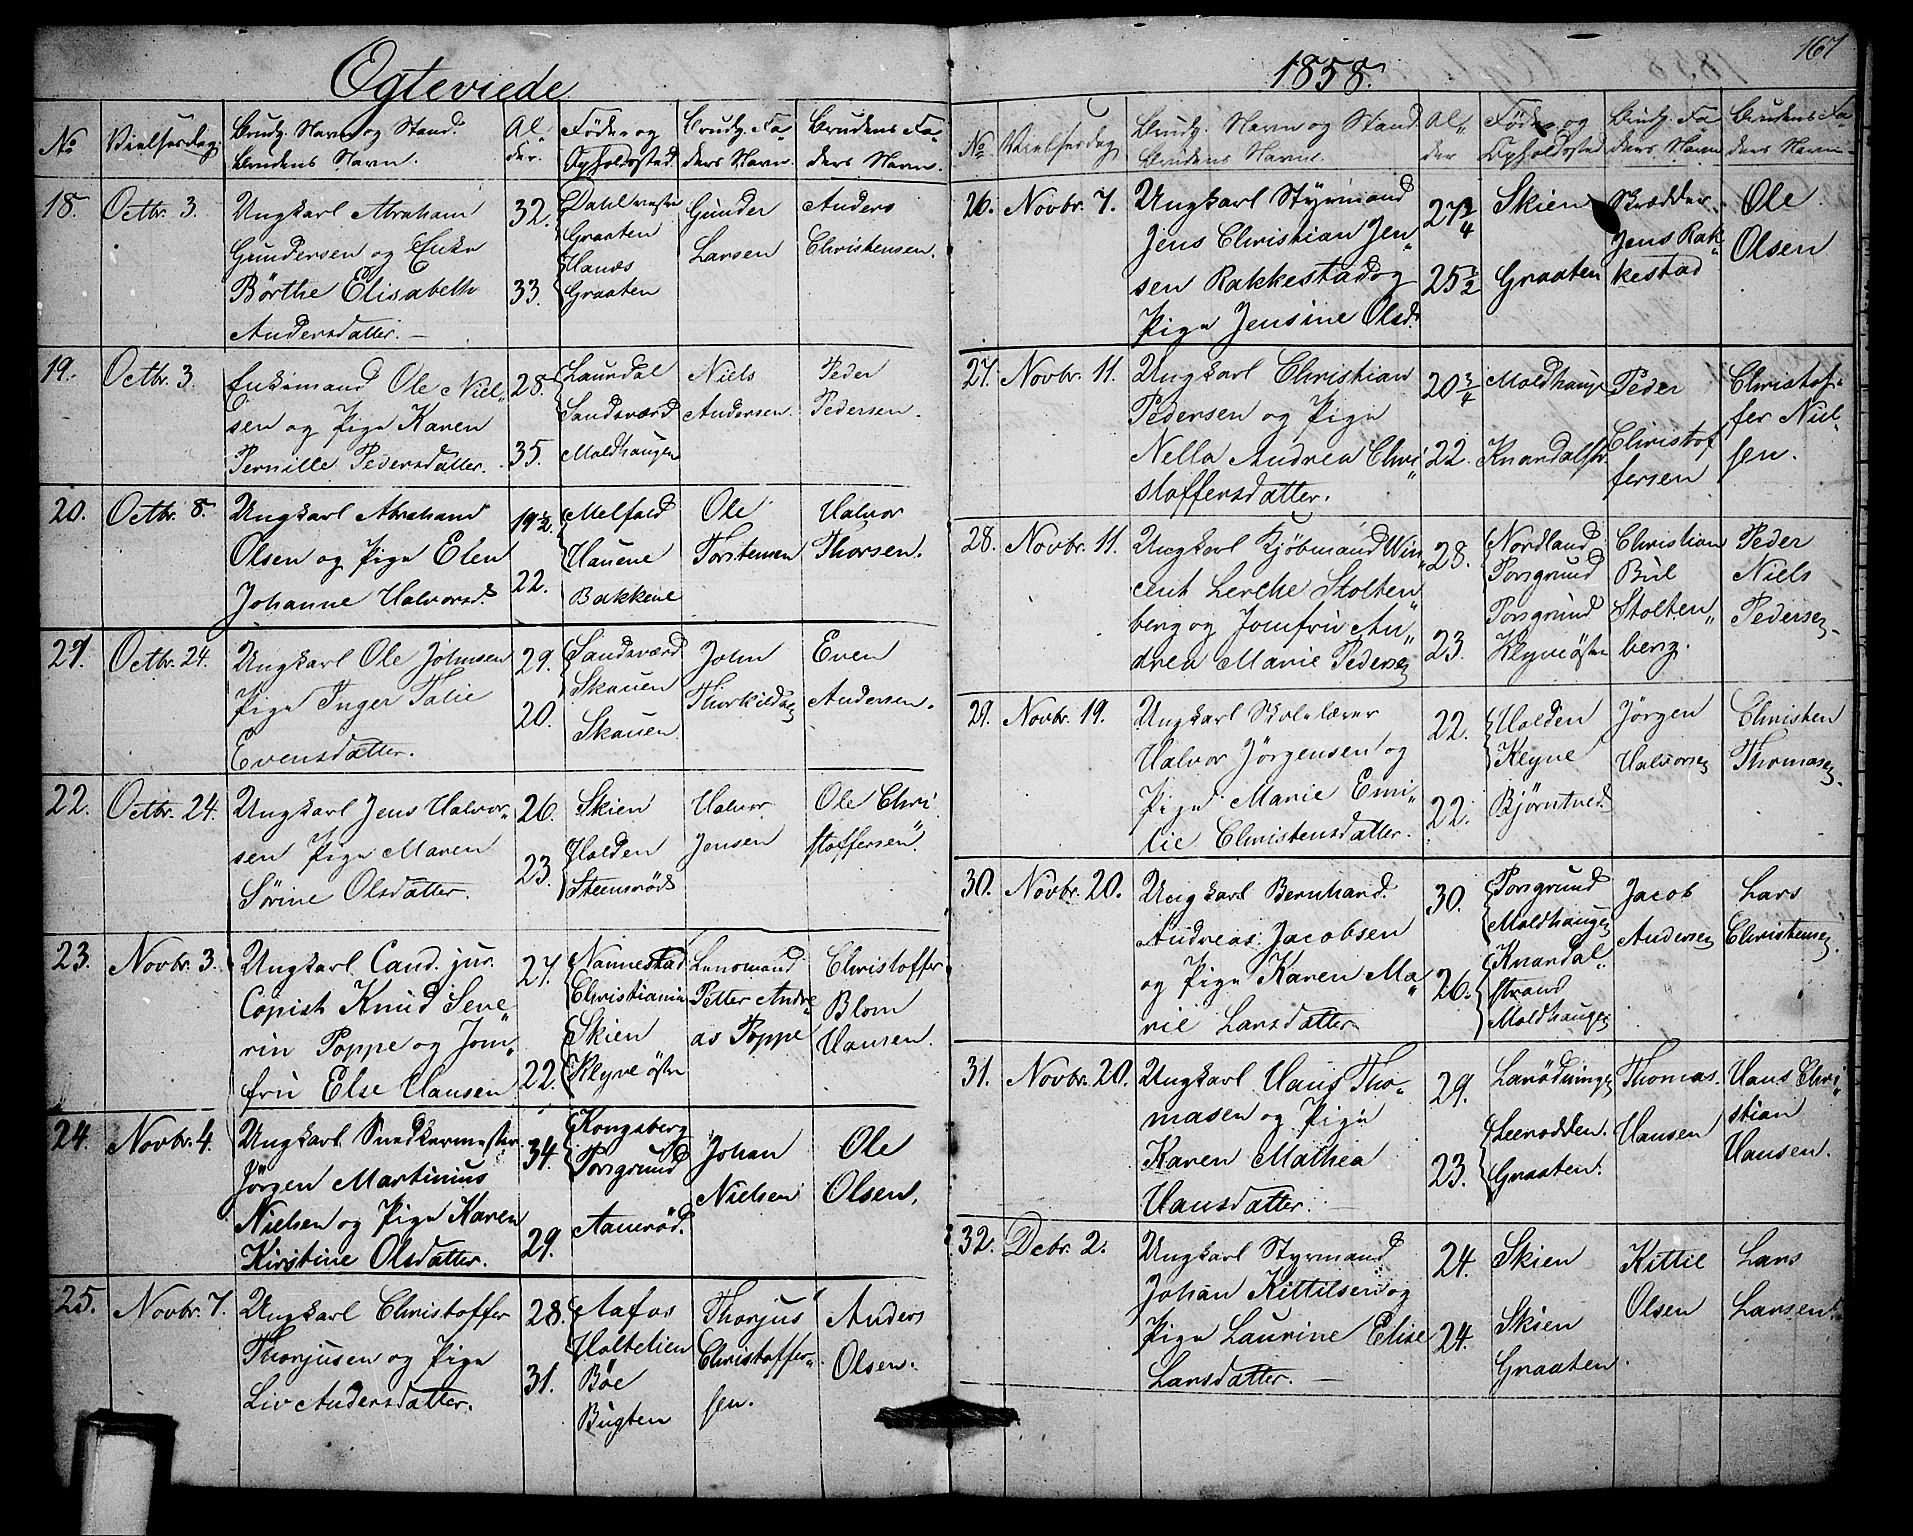 Egteviede
No
Vielsesdag
Brudg. Navn og Stand.
Brudens Navn.
Al-
der.
Føde- og
Opholdssted.
Brudg. Fa-
ders Navn.
Brudens Fa-
ders Navn.
18.
Octbr. 3.
Ungkarl Abraham
Gundersen og Enke
Börthe Elisabeth
Andersdatter.
32.
33.
Graaten
Graaten
Gunder
Larsen
Anders
Christensen.
19.
Octbr. 3.
Enkemand Ole Niel-
sen og Pige Karen
Pernille Pedersdatter.
28.
35.
Laurdal
Sandsværd
Moldhaugen
Niels
Andersen.
Peder
Pedersen.
20.
Octbr. 8.
Ungkarl Abraham
Olsen og Pige Elen
Johanne Halvorsd.
19½.
22.
Melfald
Hauene
Bakkene
Ole
Torstensen
Halvor
Thorsen.
21.
Octbr. 24.
Ungkarl Ole Johnsen
Pige Inger Talie
Evensdatter.
29.
20.
Sandsværd
Skauen
Skauen
John
Thorkildsen
Even
Andersen.
22.
Octbr. 24.
Ungkarl Jens Halvor-
sen Pige Maren
Sörine Olsdatter.
26.
23.
Skien
Holden
Steensröd
Halvor
Jensen
Ole Chri
stoffersen
23.
Novbr. 3.
Ungkarl Cand. jur.
Copist Knud Seve
rin Poppe og Jom-
fru Else Hansen
27.
22.
Nannestad
Christiania
Skien
Klyve östre
Lensmand
Petter Andre
as Poppe
Christoffer
Blom
Hansen.
24.
Novbr. 4.
Ungkarl Snedkermester
Jörgen Martinius
Nielsen og Pige Karen
Kirstine Olsdatter.
34.
29.
Kongsberg
Porsgrund
Aamröd.
Johan
Nielsen
Ole
Olsen.
25.
Novbr. 7.
Ungkarl Christoffer
Thorjusen og Pige
Liv Andersdatter.
28.
31.
Aafos
Holtelien
Böe
Bugten
Thorjus
Christoffer-
sen.
Anders
Olsen.
1858.
167
No
Vielsesdag
Brudg. Navn og Stand
Brudens Navn.
Al-
der
Føde- og
Opholdssted
Brudg. Fa-
ders Navn
Brudens Fa-
ders Navn
26.
Novbr. 7.
Ungkarl Styrmand
Jens Christian Jen-
sen Rakkestad og
Pige Jensine Olsd.
27¾
25½
Skien
Graaten
Skrædder
Jens Rak-
kestad
Ole
Olsen
27.
Novbr. 11.
Ungkarl Christian
Pedersen og Pige
Nella Andrea Chri
stoffersdatter.
20¾
22.
Moldhaug
Knardalstr.
Peder
Christof
fersen
Christof-
fer Niel-
sen.
28.
Novbr. 11.
Ungkarl Kjöbmand Win-
cent Lerche Stolten
berg og Jomfru An-
drea Marie Pedersen
28.
23.
Nordland
Porsgrund
Porsgrund
Klyve östre
Christian
Bul
Stolten-
berg.
Peder
Niels
Pedersen
29.
Novbr. 19.
Ungkarl Skolelærer
Halvor Jörgensen og
Pige Marie Emi-
lie Christensdatter.
22.
22.
Holden
Klyve
Björntved
Jörgen
Halvorsen
Christen
Thomasen
30.
Novbr. 20.
Ungkarl Bernhard
Andreas Jacobsen
og Pige Karen Ma-
rie Larsdatter
30.
26.
Porsgrund
Moldhaugen
Knardal-
strand
Moldhaugen
Jacob
Andersen
Lars
Christensen.
31.
Novbr. 20.
Ungkarl Hans Tho-
masen og Pige
Karen Mathea
Hansdatter.
29.
23.
Leerodden.
Graaten.
Thomas
Hansen
Hans Chri
stian
Hansen.
32.
Dcbr. 2.
Ungkarl Styrmand
Johan Kittilsen og
Pige Laurine Elise
Larsdatter.
24.
24.
Skien
Skien
Graaten.
Kittil
Olsen
Lars
Larsen